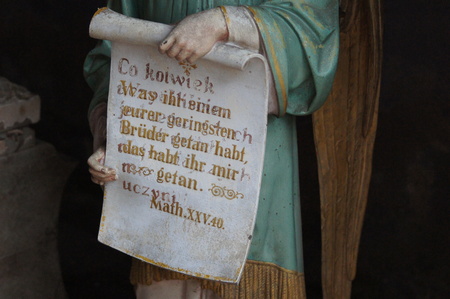 Co kolwiek
Was ihr einem
eurer geringsten
Brüder getan habt,
das habt ihr mir
getan.
uczyni
Math. XXV.40.